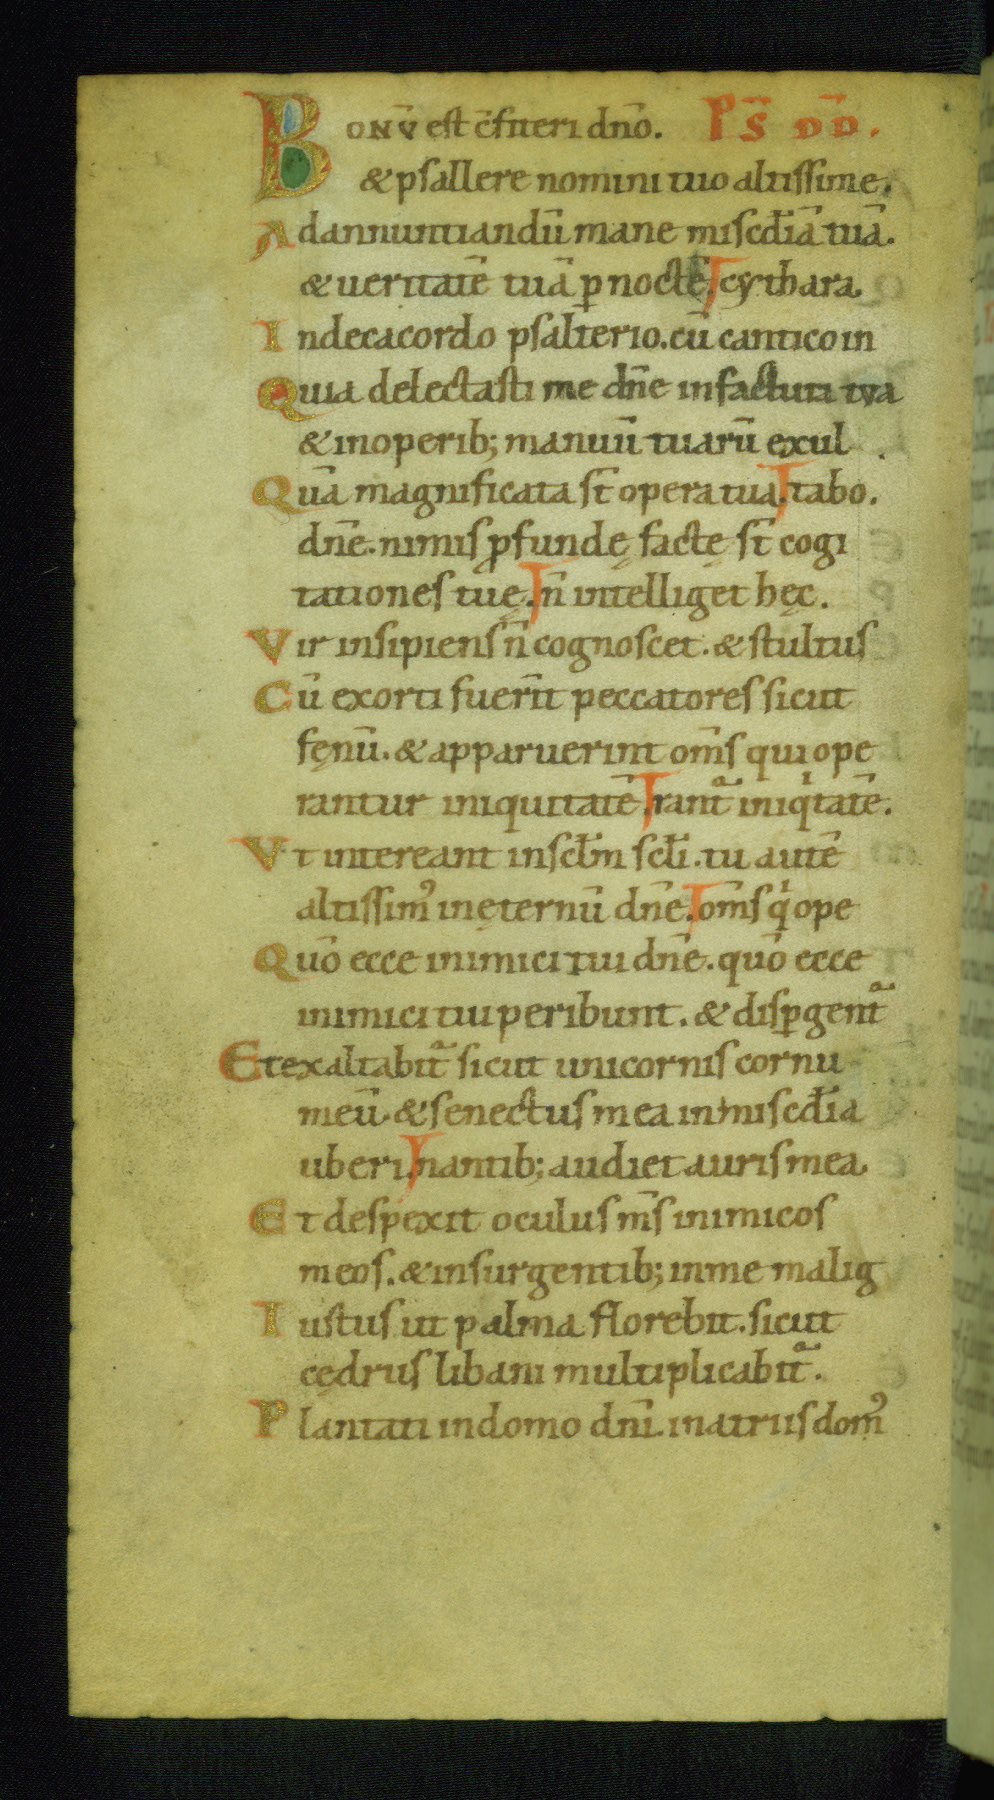 BONV̄ est c̄fiteri dn̄o. PS̄ DD̄.
& psallere nomini tuo altissime.
Adannuntiandū mane misc̄diā tuā.
& ueritatē tuā ꝑ noctē. cythara
Indecacordo psalterio. cū cantico in
Quia delectasti me dn̄e infactura tua
& inoperib; manuū tuarū exul
Quā magnificata st̄ opera tua. tabo.
dn̄e. nimis ꝓfundę factę st̄ cogi
tationes tuę. n̄ intelliget hęc.
Vir insipiens n̄ cognoscet. & stultus
Cū exorti fuerīt peccatores sicut
fęnū. & apparuerint om̄s qui ope
rantur iniquitatē. rant᷑ iniqͥtatē.
Vt intereant insc̄lm sc̄li. tu autē
altissimꝰ inęternū dn̄e. om̄s qͥ ope
Quō ecce inimici tui dn̄e. quō ecce
inimici tui peribunt. & disꝑgent᷑
Et exaltabit᷑ sicut unicornis cornu
meū. & senectus mea inmisc̄dia
uberi. nantib; audiet auris mea
Et despexit oculus m̄s inimicos
meos. & insurgentib; inme malig
Iustus ut palma florebit. sicut
cędrus libani multiplicabit᷑.
Plantati indomo dn̄i. inatriis domꝰ